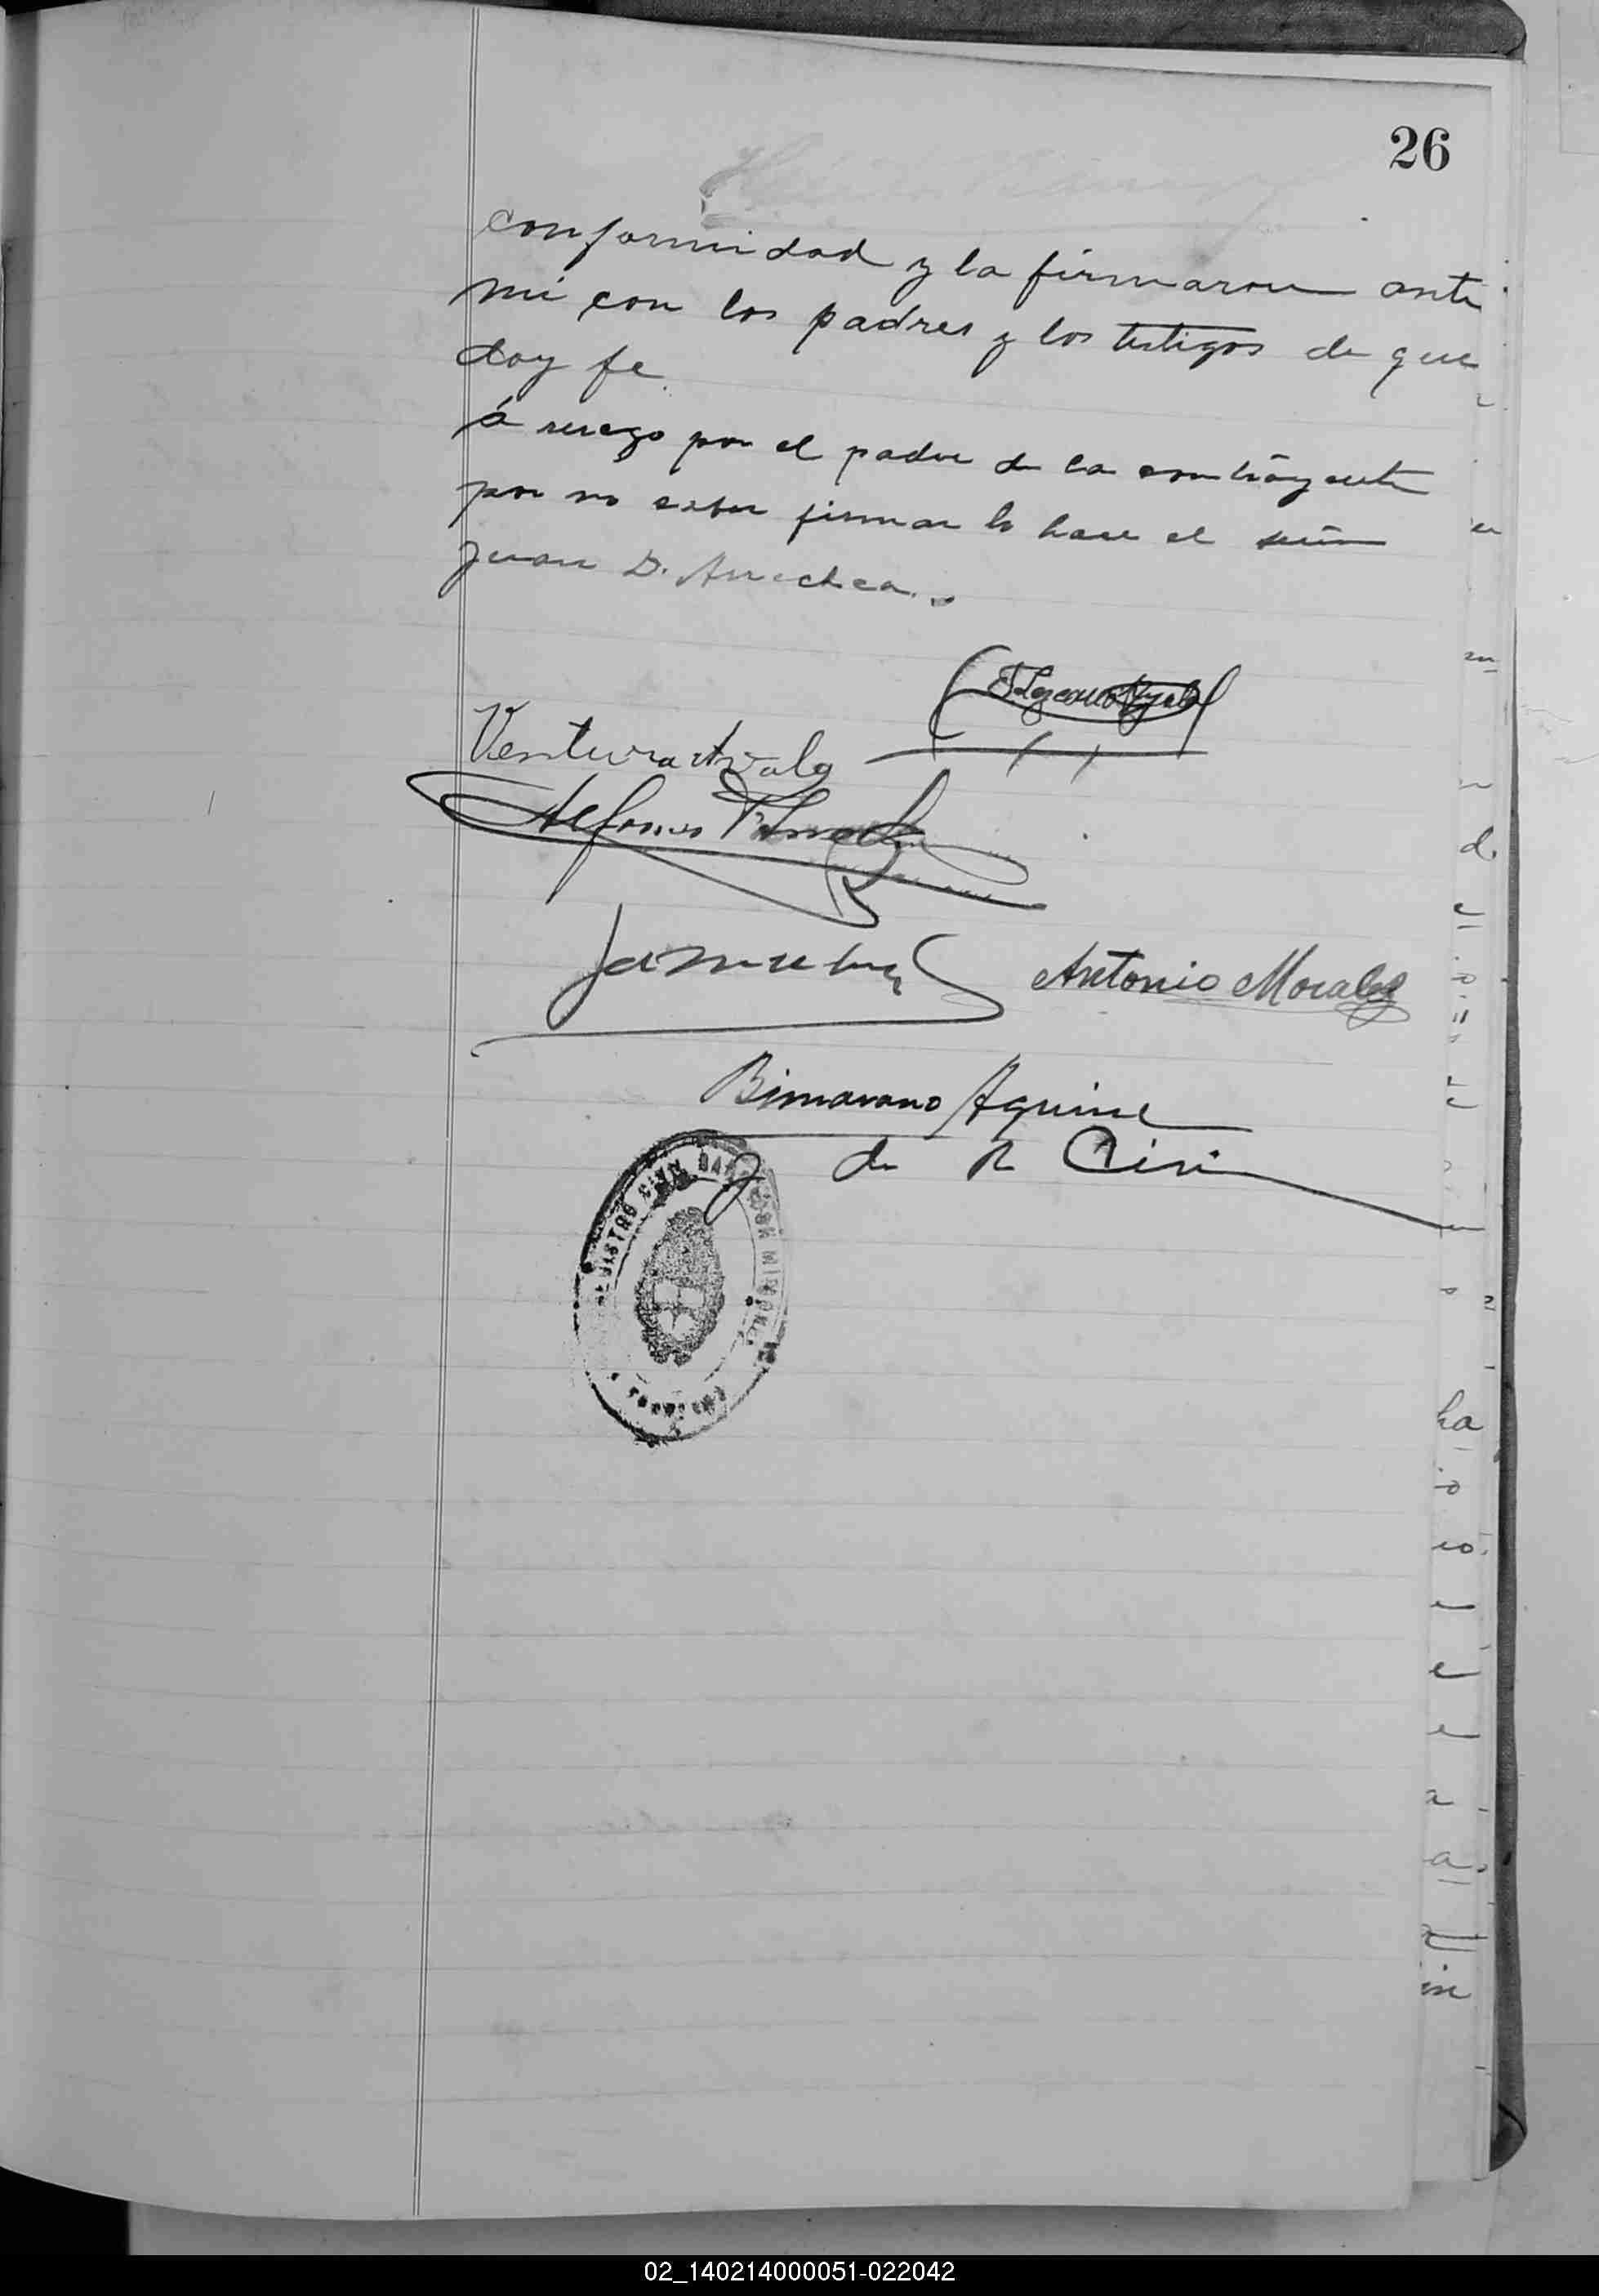 26
conformidad y la firmaron ante
mi con los padres y los testigos de que
doy fe
á ruego por el padre de la contrayente
por no saber firmar lo hace el señor
Juan D. Arrechea.
Ventura Ayala
Alfonso
Antonio Morales
Aguirre
J de R Civil
REGISTRO CIVIL
ha
02_140214000051-022042